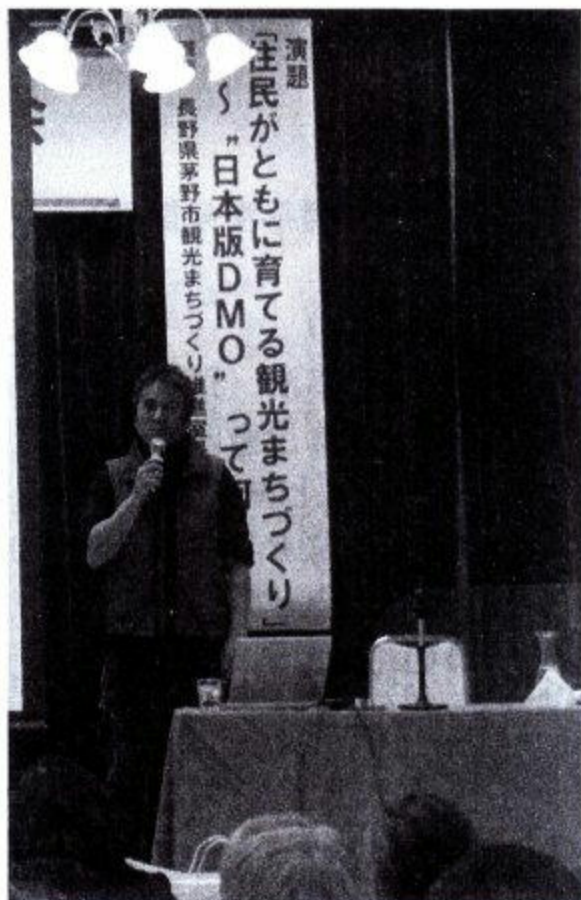 演題
「住民がともに育てる観光まちづくり」
～〝日本版DMO〟って何
長野県茅野市観光まちづくり推進室